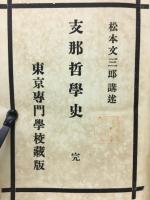 松本文三郎講述
支那哲學史 完
東京專門學校藏版